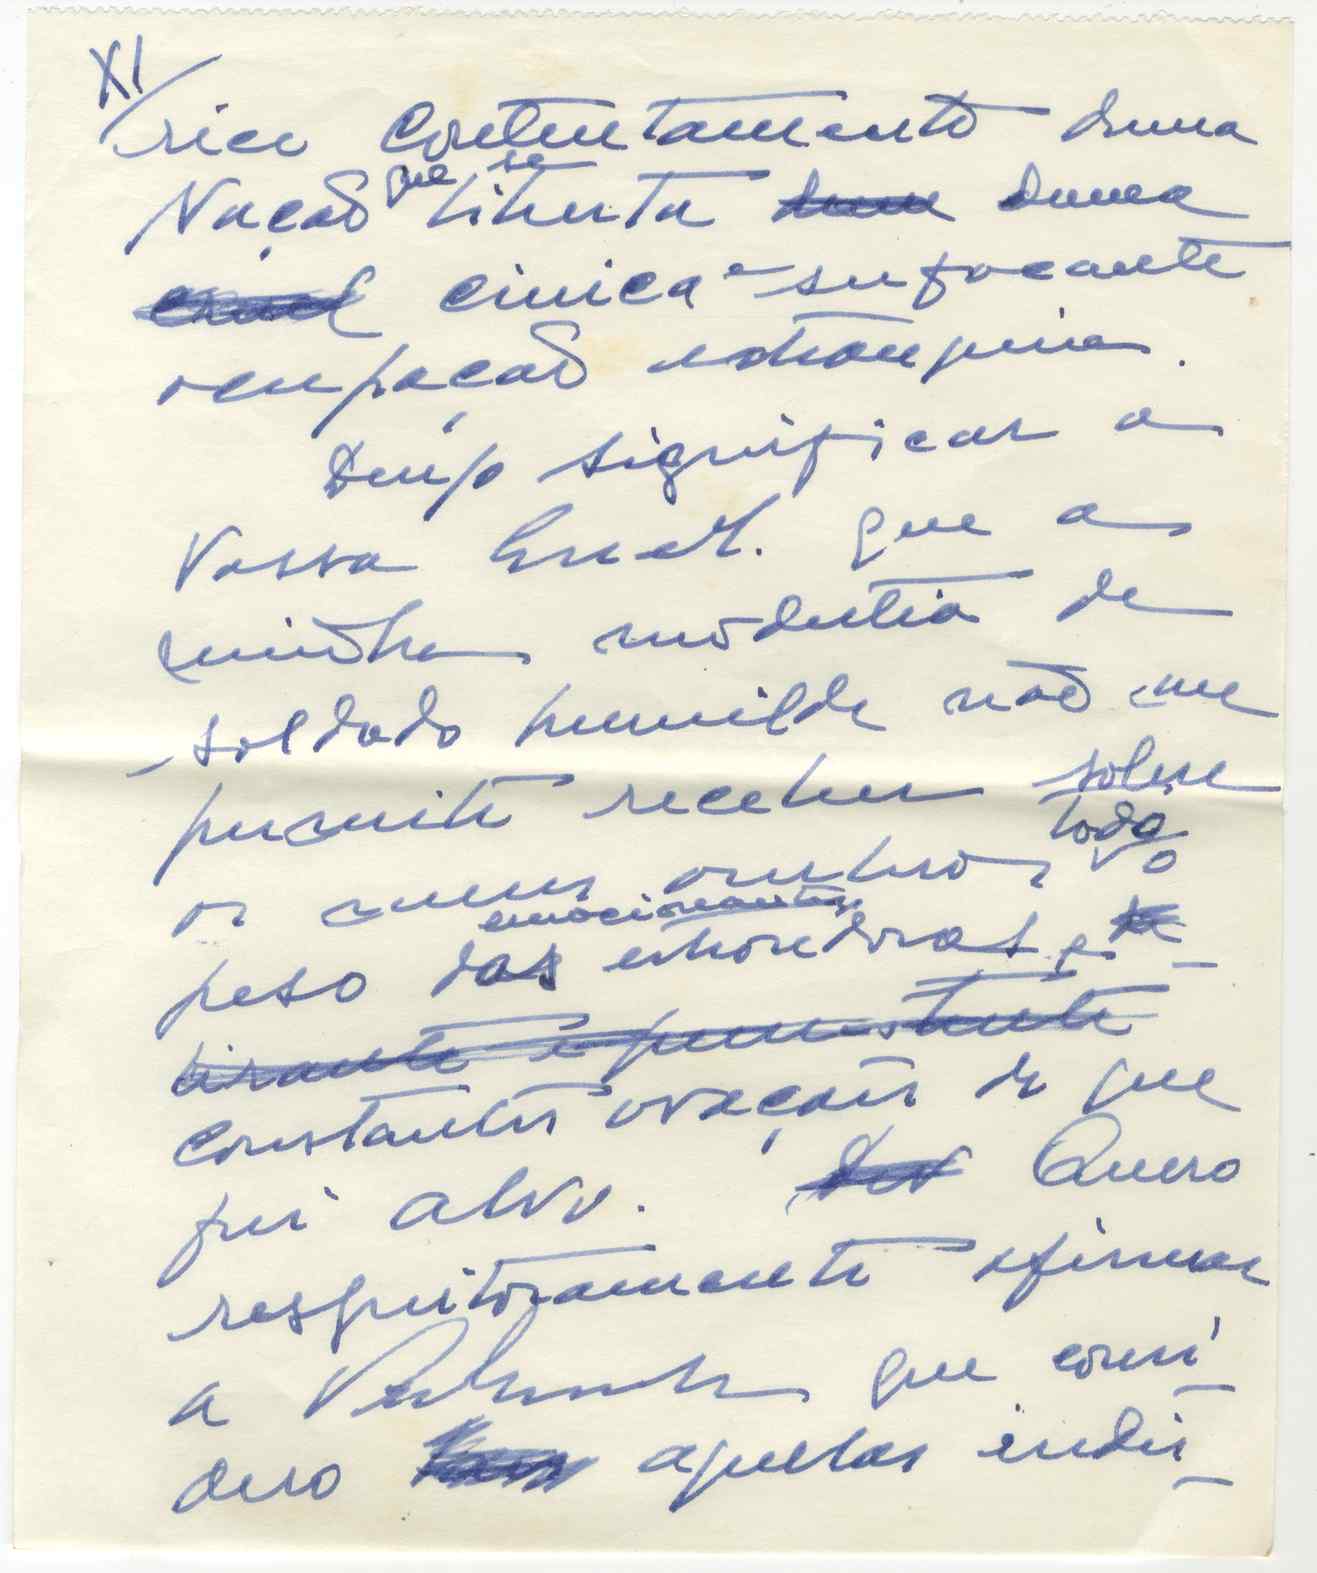 XI
rico contentamento duma
Nação que se liberta duma
cinica e sufocante
ocupação estrangeira.
Desejo significar a
Vossa que a
minha modestia de
soldado humilde não me
permite receber sobre
os meus ombros todo o
peso das emocionantes estrondosas e
constantes ovações de que
fui alvo. Quero
respeitosamente afirmar
a que consi-
dero aquelas indis-